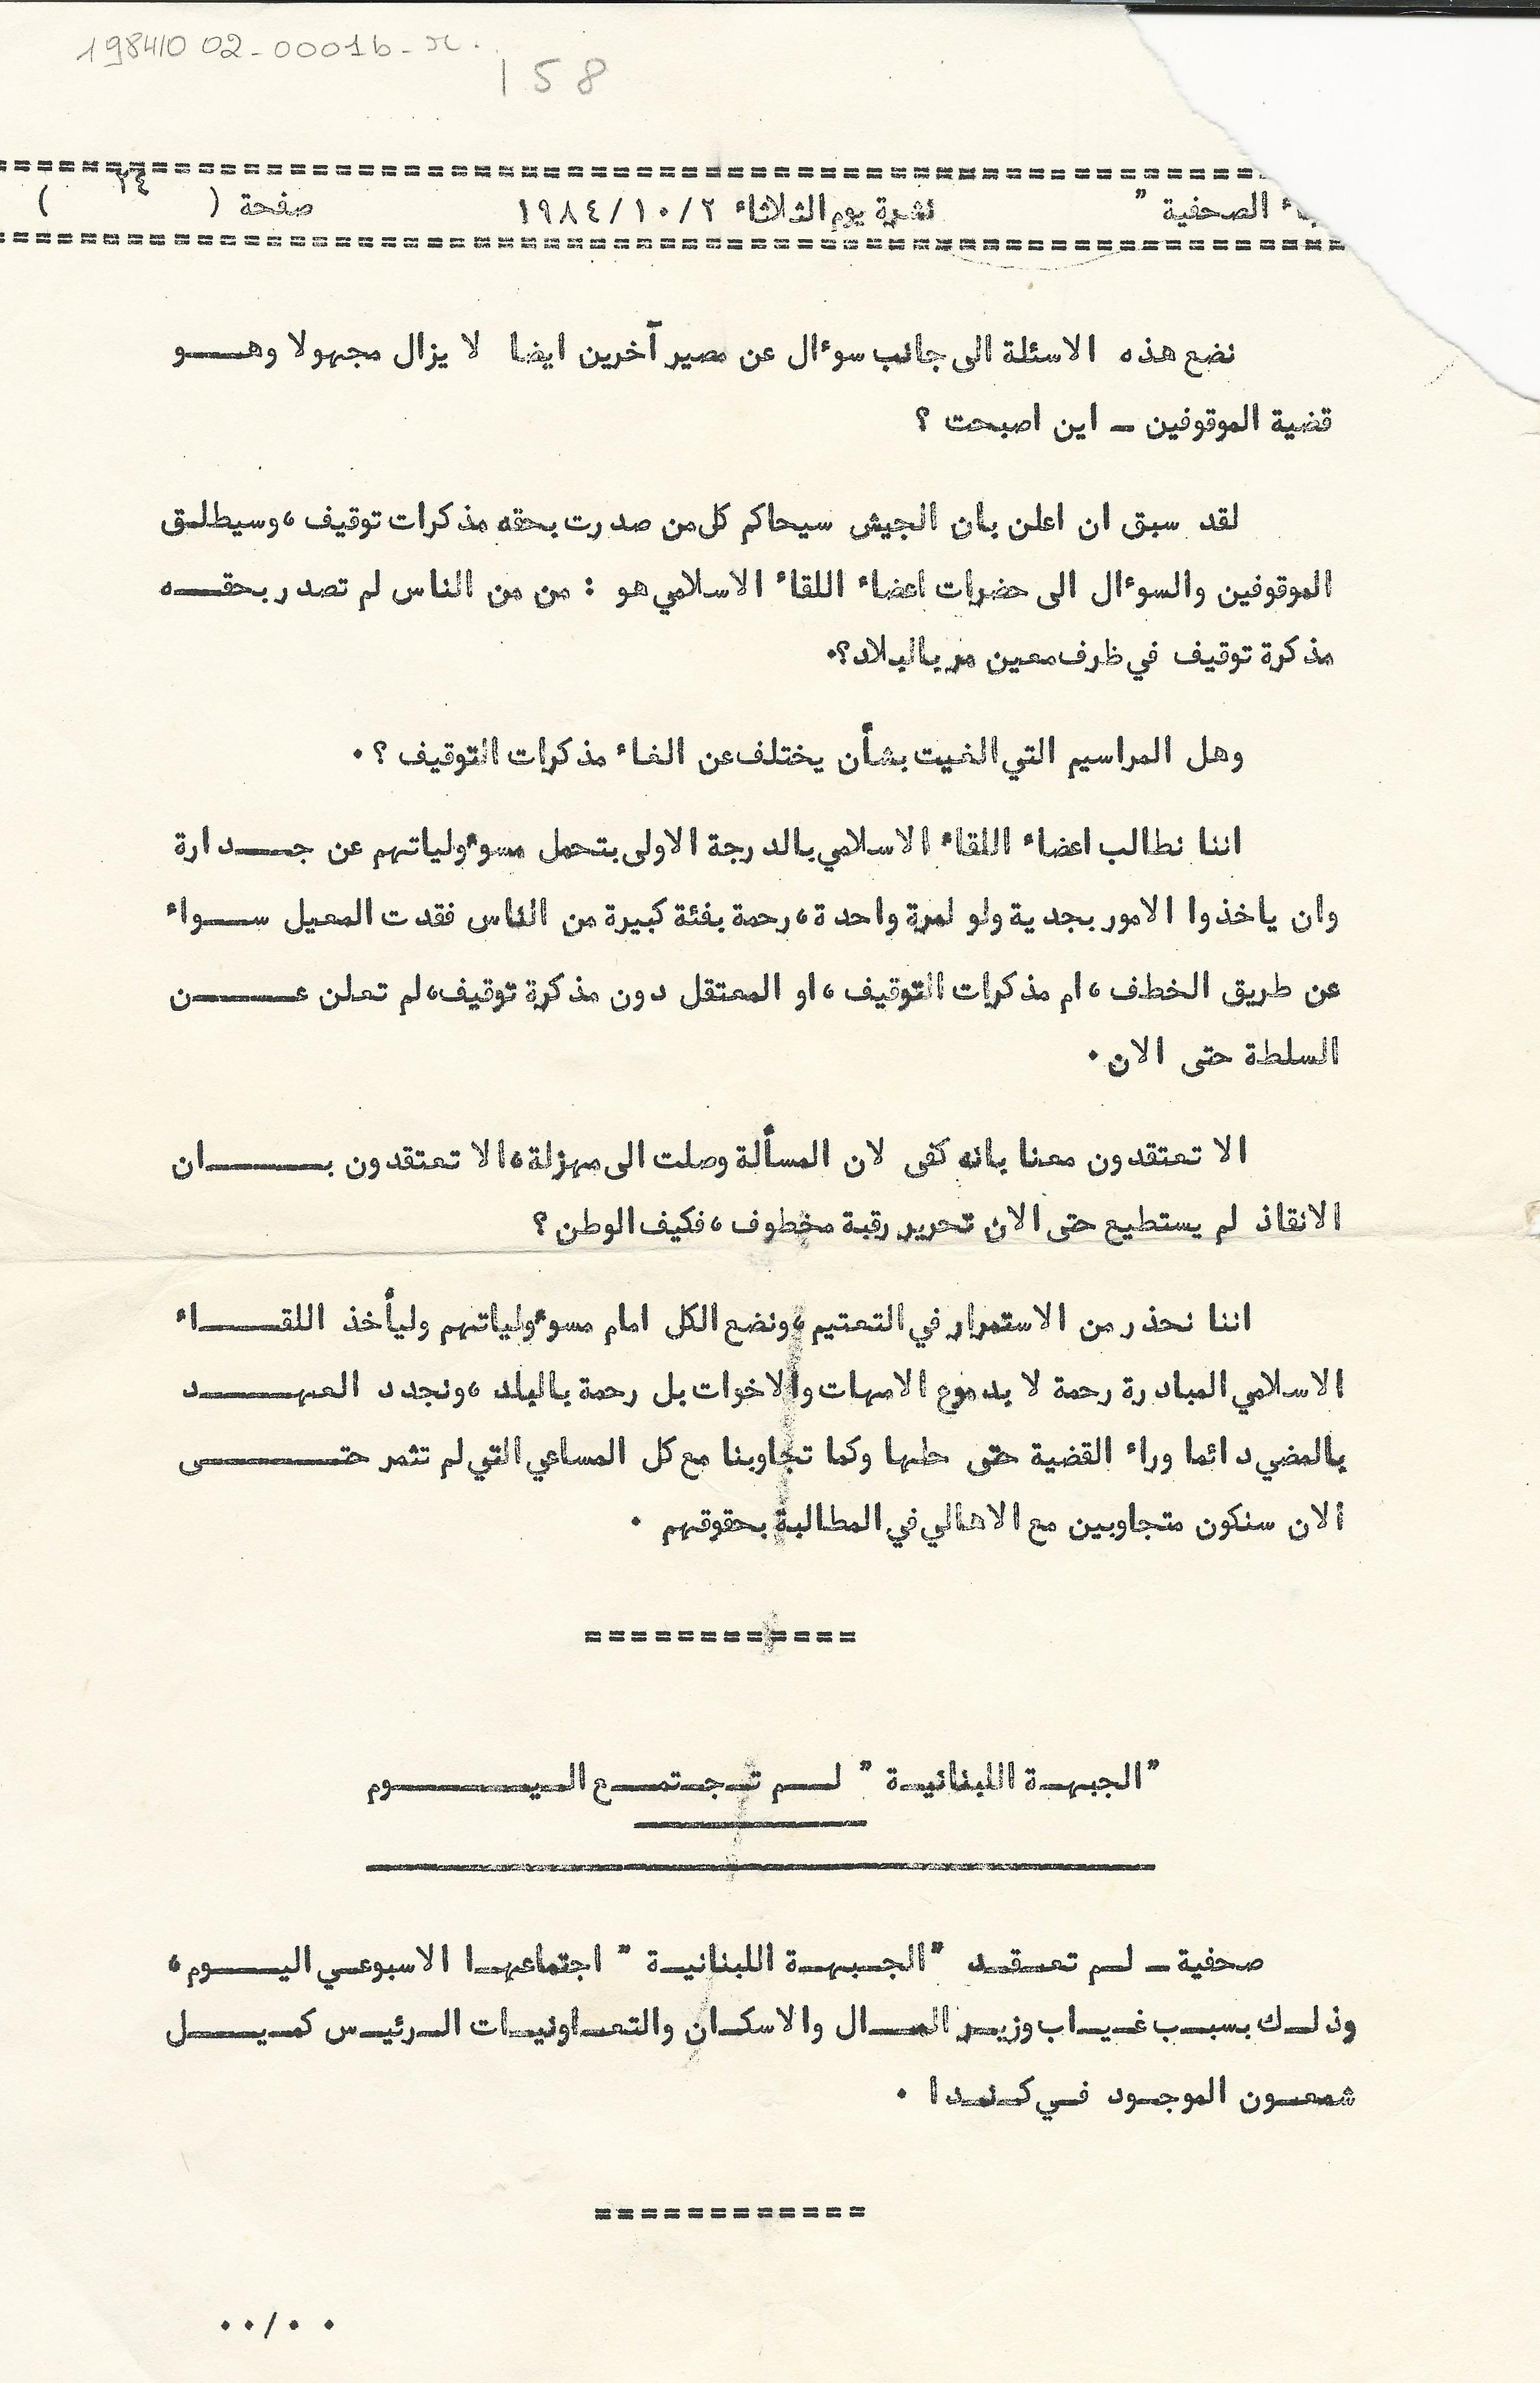 198410 02-00016-x.
158
ـاء الصحفية " نشرة يوم الثلاثاء ١٩٨٤/١٠/٢ صفحة ( ٢٤ )
نضع هذه الاسئلة الى جانب سوءال عن مصير آخرين ايضا لا يزال مجهولا وهـــو
قضية الموقوفين ــ اين اصبحت ؟
لقد سبق ان اعلن بان الجيش سيحاكم كل من صدرت بحقه مذكرات توقيف ، وسيطلـق
الموقوفين والسوءال الى حضرات اعضاء اللقاء الاسلامي هو : من من الناس لم تصدر بحقـــه
مذكرة توقيف في ظرف معين مر بالبلاد؟.
وهل المراسيم التي الغيت بشأن يختلف عن الغاء مذكرات التوقيف ؟ .
اننا نطالب اعضاء اللقاء الاسلامي بالدرجة الاولى بتحمل مسوءولياتهم عن جـــدارة
وان ياخذوا الامور بجدية ولو لمرة واحدة ، رحمة بفئة كبيرة من الناس فقدت المعيل ســواء
عن طريق الخطف ، ام مذكرات التوقيف ، او المعتقل دون مذكرة توقيف ، لم تعلن عـــــن
السلطة حتى الان .
الا تعتقدون معنا بانه كفى لان المسألة وصلت الى مهزلة ، الا تعتقدون بـــــان
الانقاذ لم يستطيع حتى الان تحرير رقبة مخطوف ، فكيف الوطن ؟
اننا نحذر من الاستمرار في التعتيم ، ونضع الكل امام مسوءولياتهم وليأخذ اللقــــاء
الاسلامي المبادرة رحمة لا بدموع الامهات والاخوات بل رحمة بالبلد ، ونجدد العهـــــد
بالمضي دائما وراء القضية حتى حلها وكما تجاوبنا مع كل المساعي التي لم تثمر حتـــــى
الان سنكون متجاوبين مع الاهالي في المطالبة بحقوقهم .
============
"الجبهـة اللبنانيـة " لــم تـجـتمـــع اليـــــــوم
صحفية ــ لـم تعـقـد "الجـبهـة اللبنانيـة " اجتماعهـا الاسبوعـي اليــــوم ،
وذلـك بسبـب غـيـاب وزيـر المــال والاسكـان والتعـاونيـات الـرئيـس كمـيـــل
شمعـون الموجـود فـي كـنـدا .
============
٠٠/٠٠